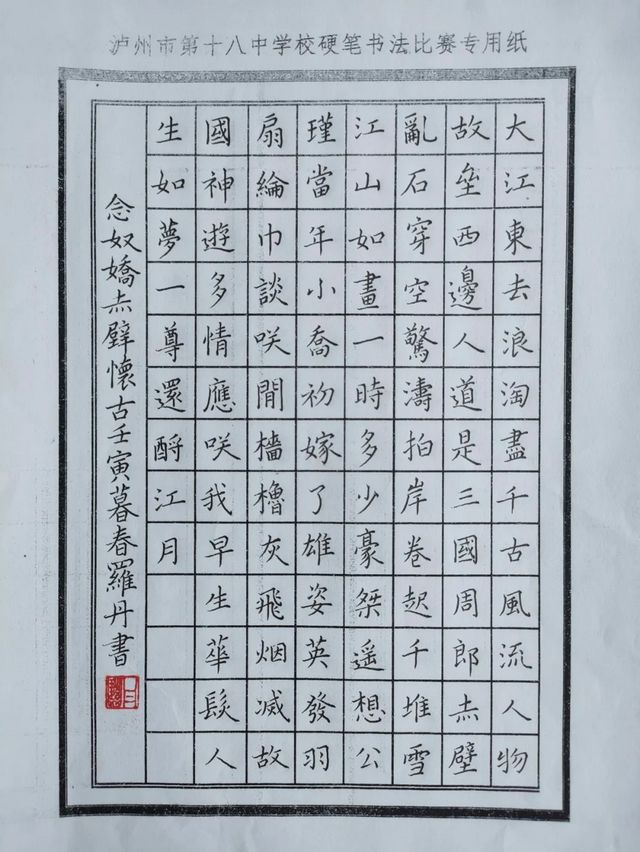 泸州市第十八中学校硬笔书法比赛专用纸
大江東去浪淘盡千古風流人物
故壘西邊人道是三國周郎赤壁
亂石穿空驚濤拍岸卷起千堆雪
江山如畫一時多少豪桀遥想公
瑾當年小喬初嫁了雄姿英發羽
扇綸巾談咲間檣櫓灰飛烟减故
國神遊多情應咲我早生華髮人
生如夢一尊還酹江月
念奴嬌赤壁懷古壬寅暮春羅丹書